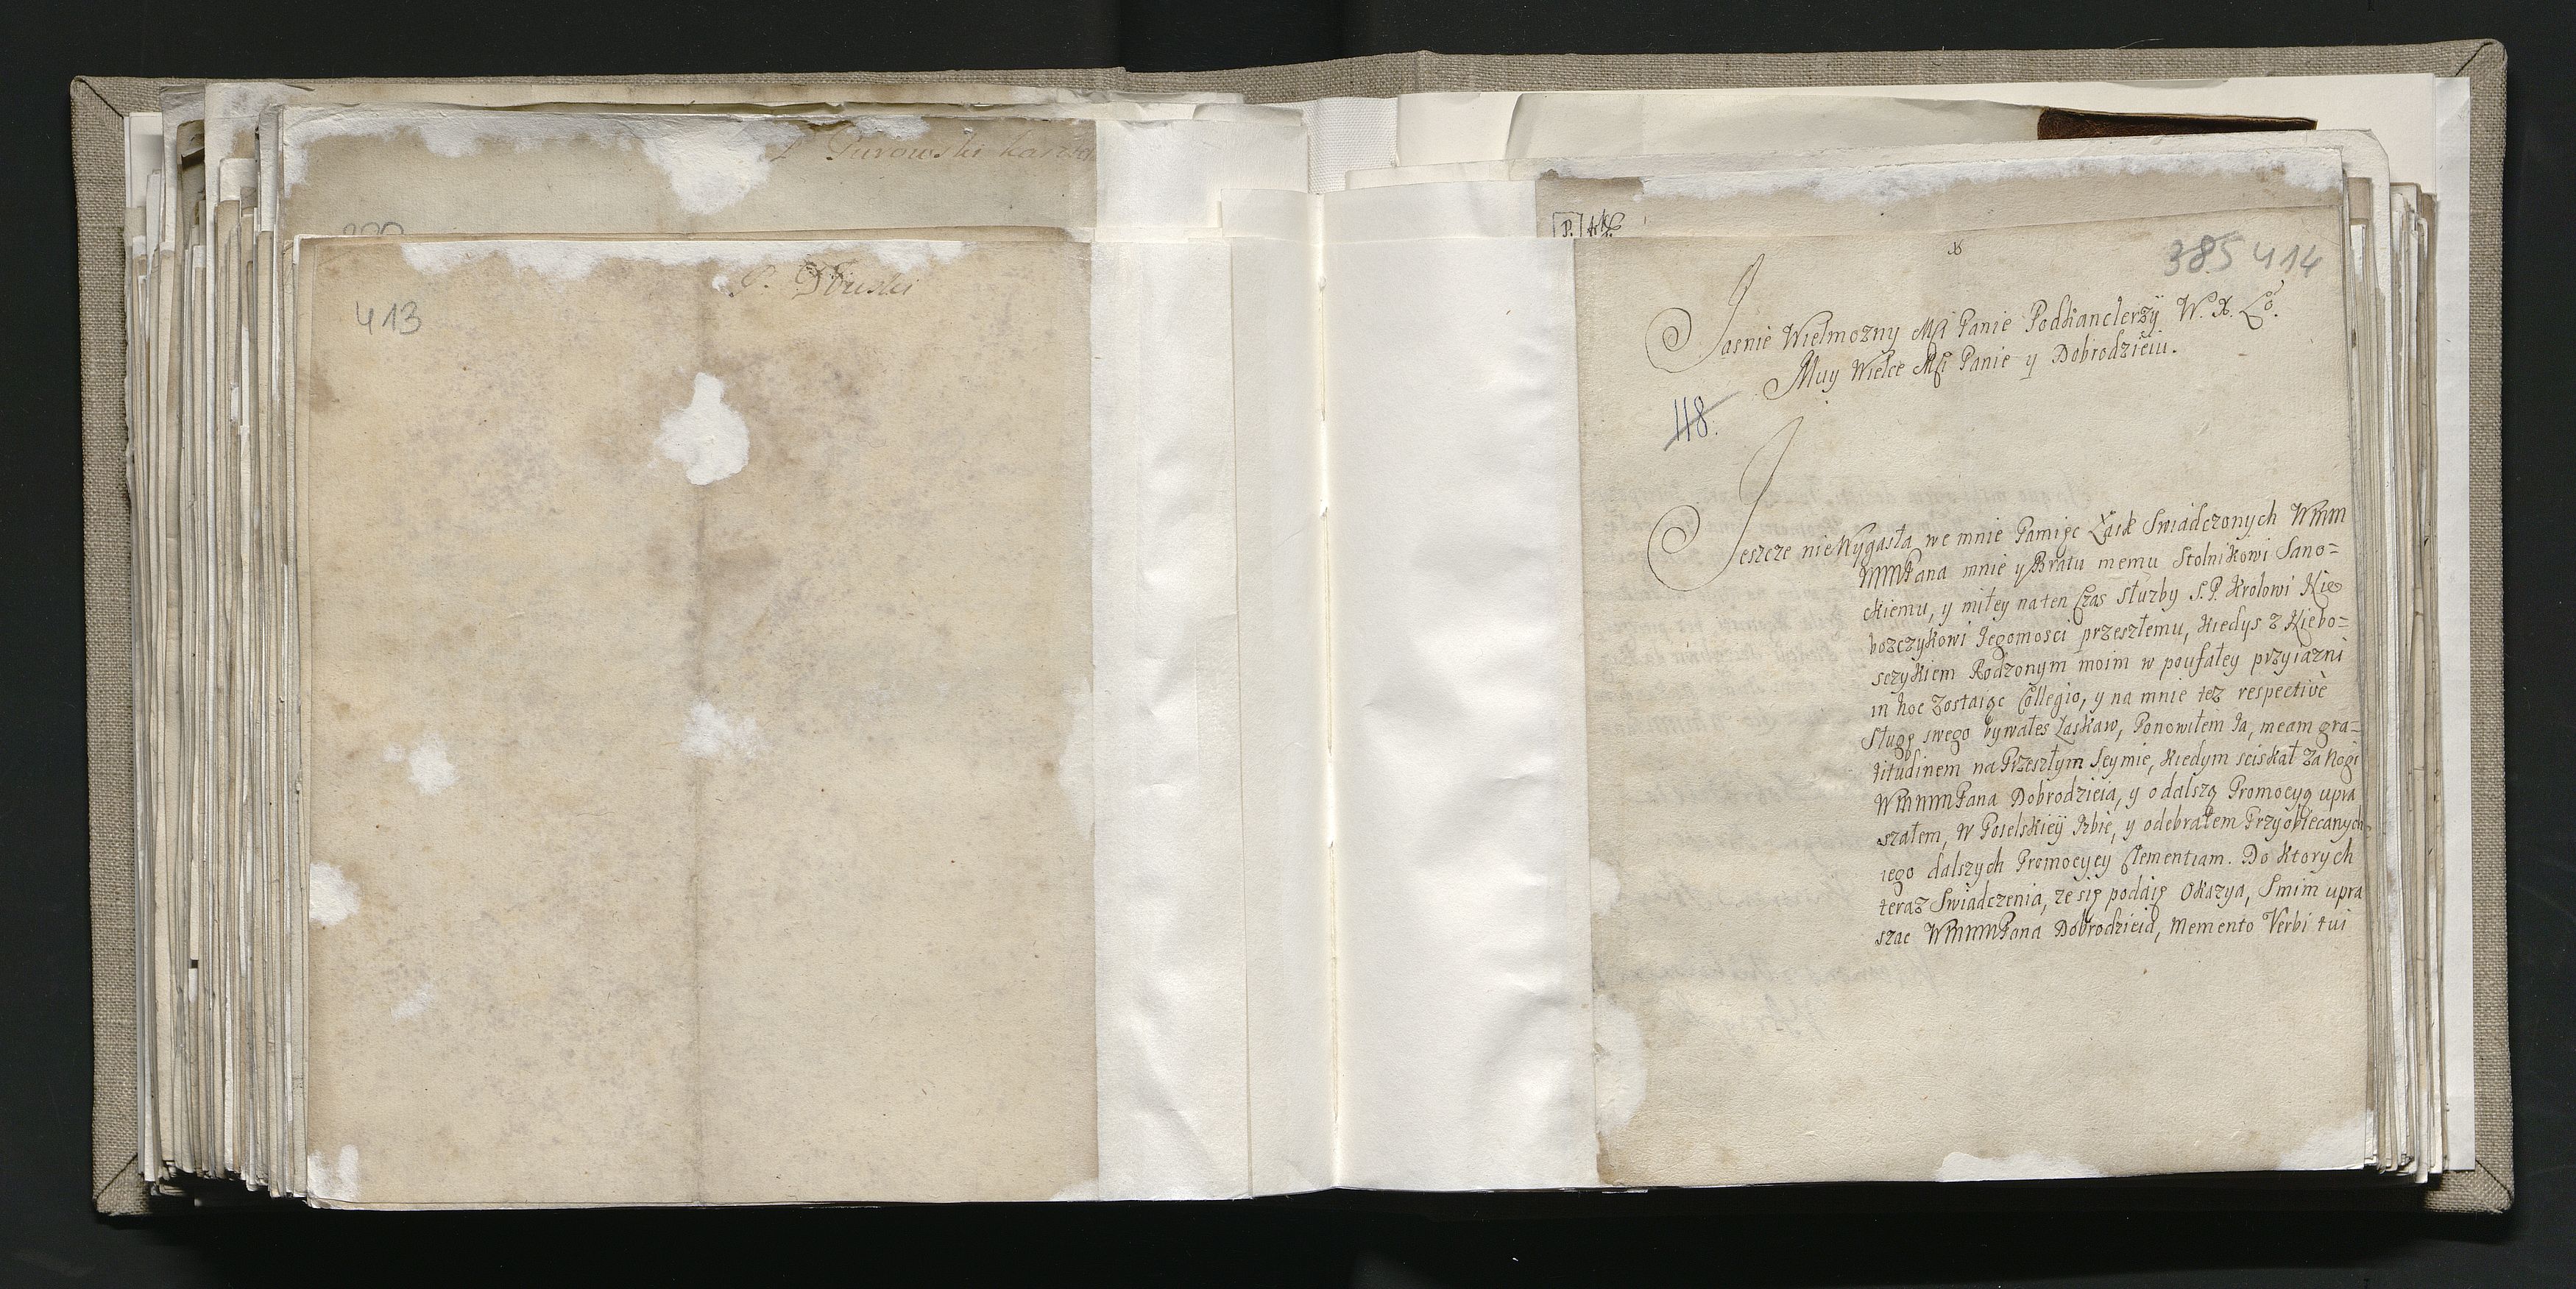 Purowski
P. Dłuski
413
385 414
Jasnie Wielmozny Mſi Panie Podkanclerzÿ W. X. Lo.
Muy Wielce Mſi Panie y Dobrodzieiu.
118.
Jeszcze nie Wygasła we mnie Pamięc Łask Swiadczonych Wmm
MMPana mnie y Bratu memu Stolnikowi Sano=
ckiemu, y miłey na ten Czas słuzby S. P. Krolowi Nie
boszczykowi Jegomosci przeszłemu, Kiedys z Niebo=
sczykiem Rodzonym moim w poufałey przyiazni
in hoc zostaiąc Collegio, y na mnie tez respective
sługę swego bywałes Łaskaw, Ponowiłem Ja, meam gra=
titudinem na Przeszłym Seymie, kiedym sciskał za Nogi
WmmmPana Dobrodzieia, y o dalszą Promocyą upra
szałem, w Poselskieÿ Izbie, y odebrałem Przyobiecanych
iego dalszych Promocyey Clementiam. Do ktorych
teraz Swiadczenia, ze się podaię Okazya, Smim upra
szac WmmmPana Dobrodzieia, Memento Verbi tui